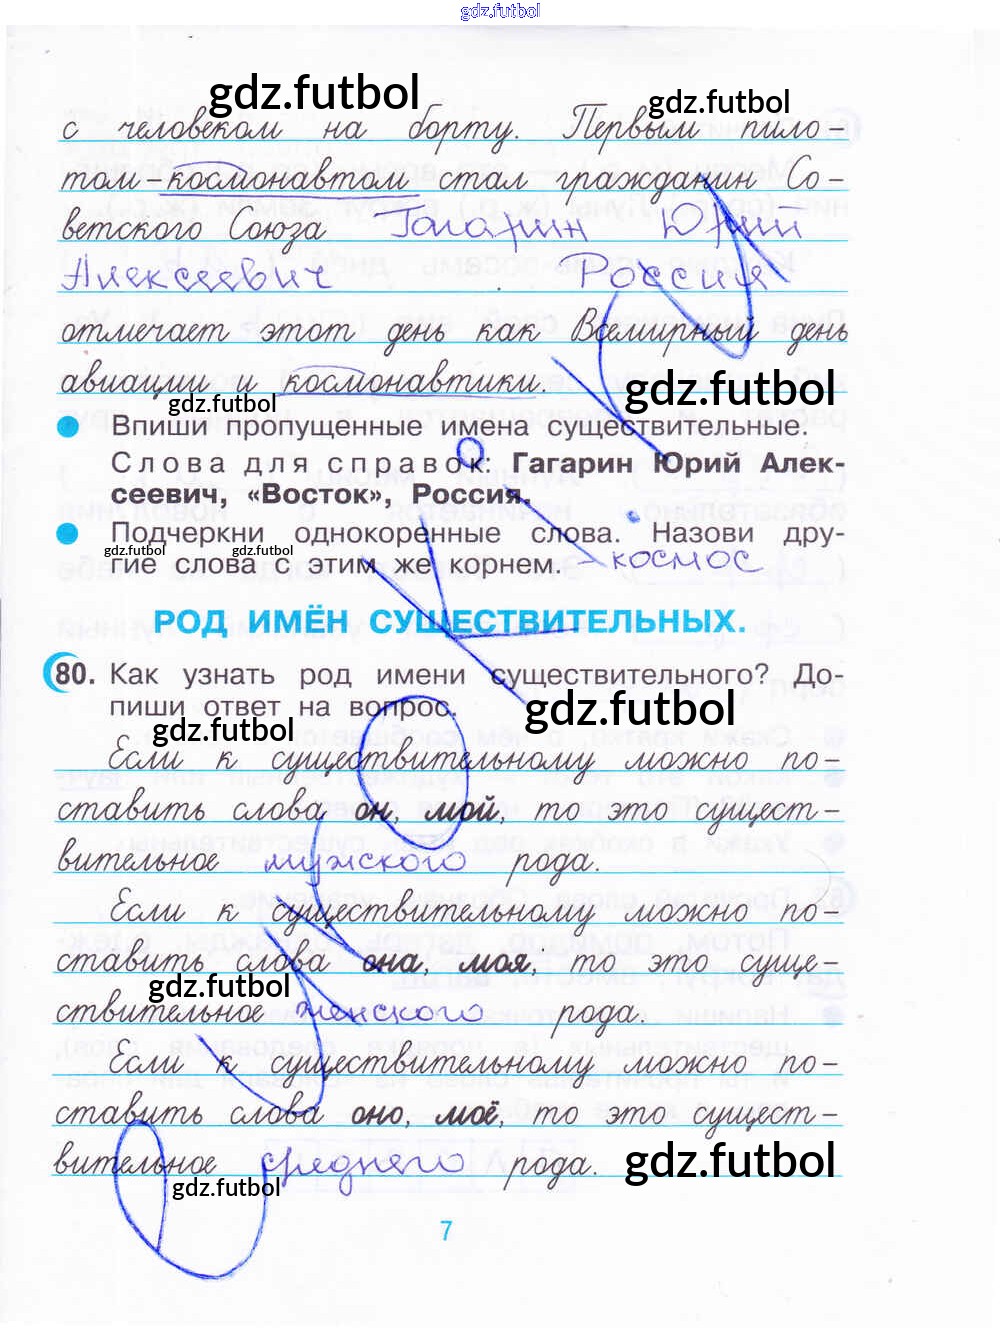 gdz.futbol
gdz.futbol
gdz.futbol
с человеком на борту. Первым пило-
том-космонавтом стал гражданин Со-
ветского Союза Гагарин Юрий
Алексеевич . Россия
отмечает этот день как Всемирный день
авиации и космонавтики.
gdz.futbol
gdz.futbol
Впиши пропущенные имена существительные.
Слова для справок: Гагарин Юрий Алек-
сеевич, «Восток», Россия.
Подчеркни однокоренные слова. Назови дру-
gdz.futbol gdz.futbol
гие слова с этим же корнем. - космос
РОД ИМЁН СУЩЕСТВИТЕЛЬНЫХ.
80. Как узнать род имени существительного? До-
пиши ответ на вопрос.
gdz.futbol
gdz.futbol
Если к существительному можно по-
ставить слова он, мой, то это сущест-
вительное мужского рода.
Если к существительному можно по-
ставить слова она, моя, то это суще-
gdz.futbol
ствительное женского рода.
Если к существительному можно по-
ставить слова оно, моё, то это сущест-
вительное среднего рода.
gdz.futbol
gdz.futbol
7